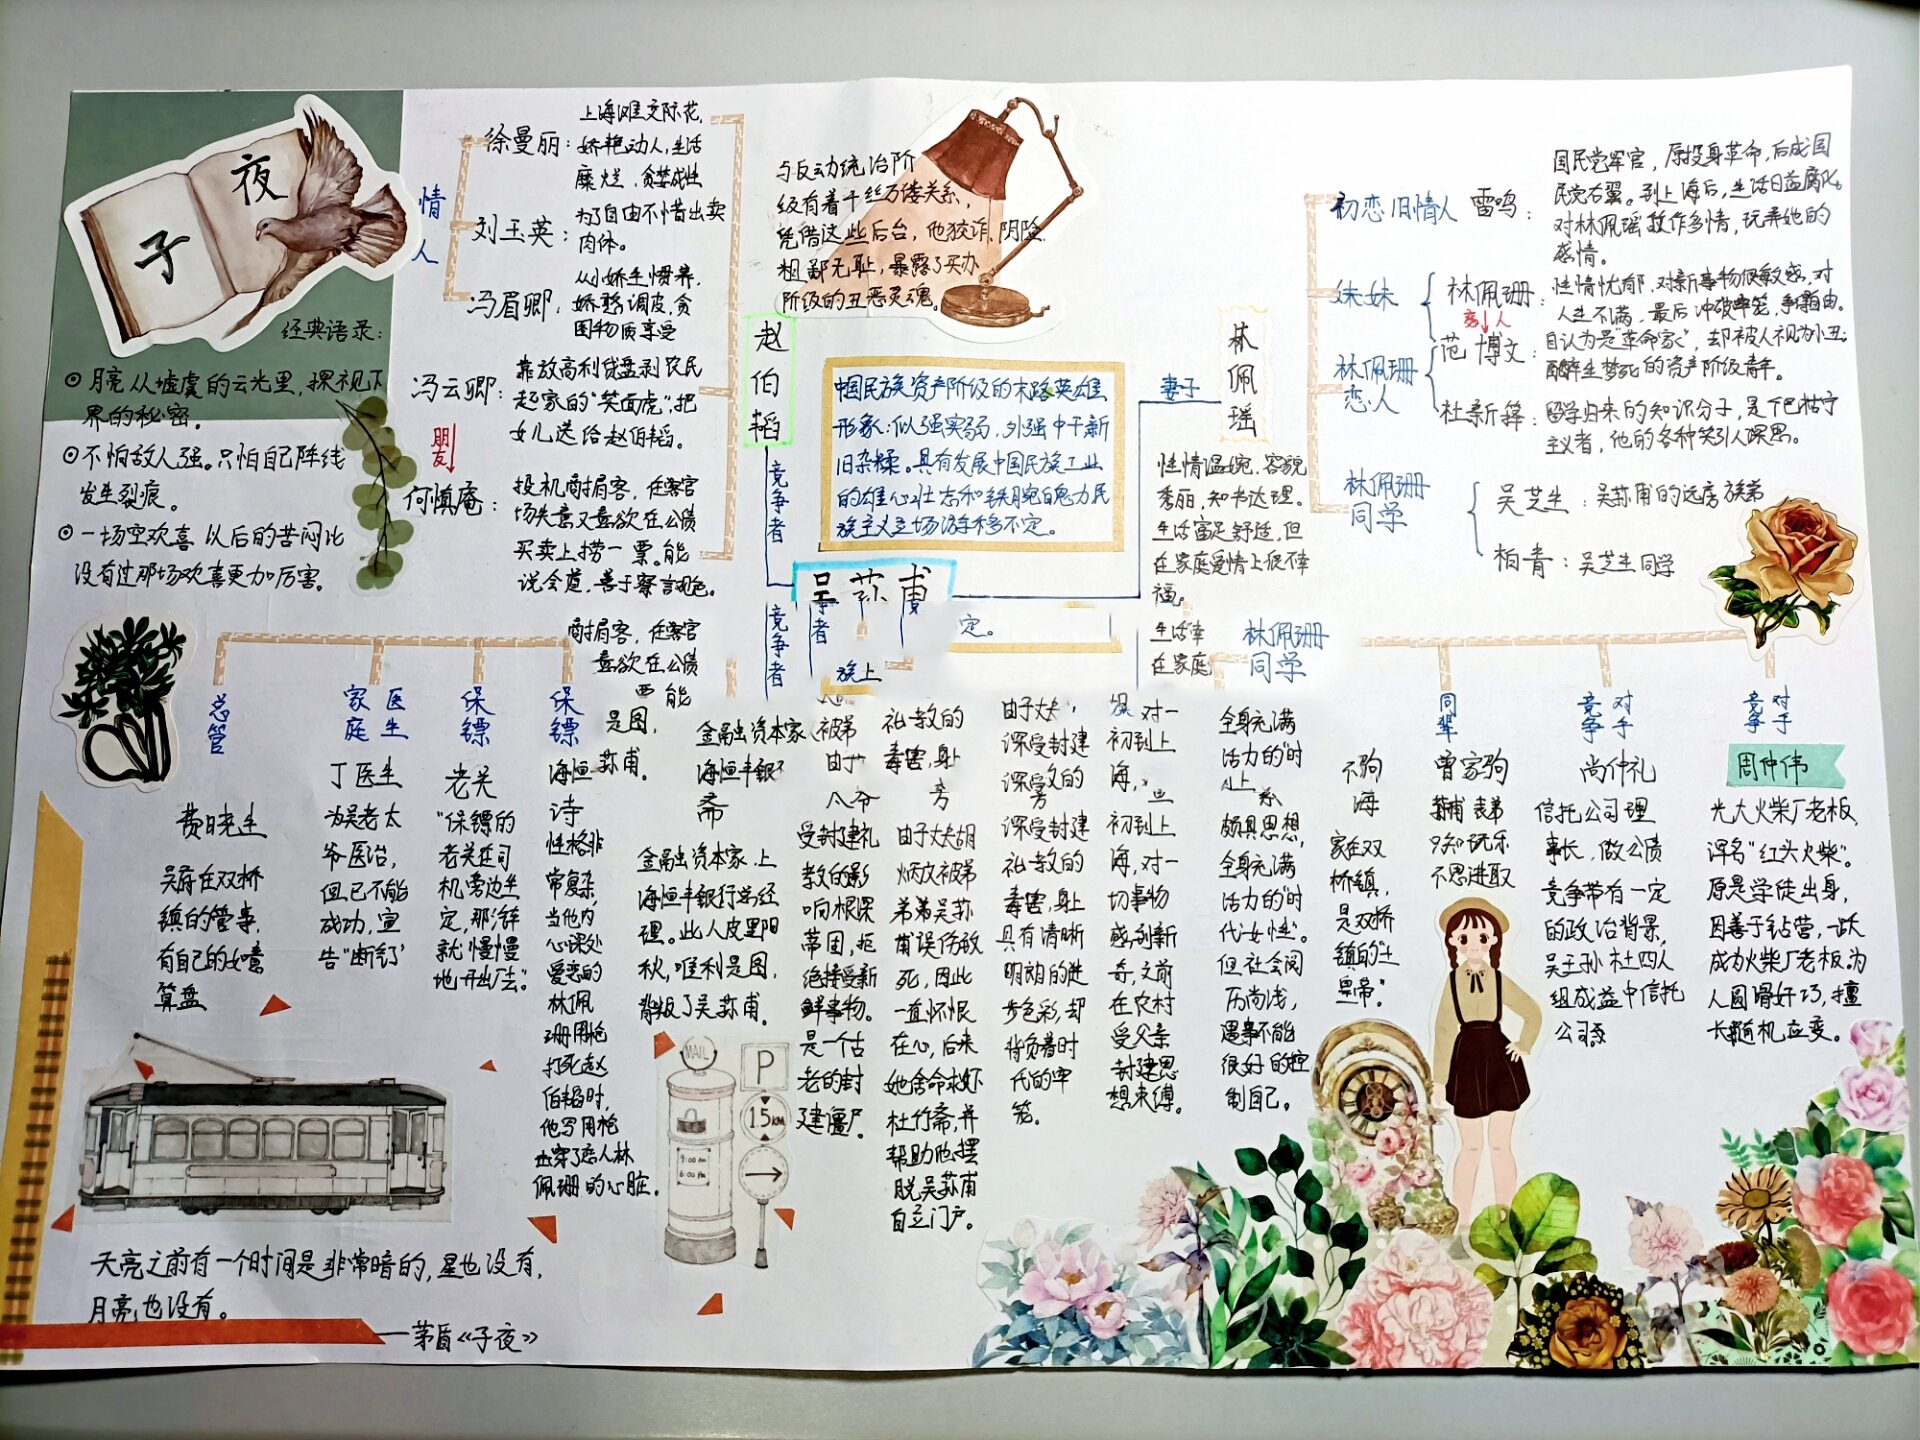 子
夜
经典语录:
⊙月亮从墟虞的云光里,裸视下
界的秘密。
⊙不怕敌人强。只怕自己阵线
发生裂痕。
⊙一场空欢喜以后的苦闷比
没有过那场欢喜更加厉害。
情人
徐曼丽:
上海滩交际花,
娇艳动人,生活
糜烂,贪婪成性
刘玉英:
为了自由不惜出卖
肉体。
冯眉卿:
从小娇生惯养,
娇憨,调皮,贪
图物质享受
冯云卿:
靠放高利贷盘剥农民
起家的"笑面虎",把
女儿送给赵伯韬。
朋友
何慎庵:
投机商掮客,任客官
场失意又喜欲在公债
买卖上捞一票。能
说会道,善于察言观色。
与反动统治阶
级有着千丝万缕关系,
凭借这些后台,他狡诈、阴险
粗鄙无耻,暴露了买办
阶级的丑恶灵魂。
赵伯韬
竞争者
中国民族资产阶级的末路英雄
形象:似强实弱,外强中干新
旧杂糅。具有发展中国民族工业
的雄心壮志和铁腕魄力民
族主义立场游移不定。
吴荪甫
妻子
林佩瑶
性情温婉,容貌
秀丽,知书达理。
生活富足舒适,但
在家庭爱情上很不幸
福。
初恋旧情人 雷鸣:
国民党军官,原投身革命,后成国
民党右翼。到上海后,生活日益腐化。
对林佩瑶故作多情,玩弄她的
感情。
妹妹
林佩珊:
性情忧郁,对新事物很敏感,对
人生不满,最后冲破牢笼,争得自由。
林佩珊
恋人
范博文:
自认为是"革命家",却被人视为小丑;
醉生梦死的资产阶级青年。
杜新箨:
留学归来的知识分子,是个巴枯宁
主义者,他的各种笑引人深思。
林佩珊
同学
吴芝生:吴荪甫的远房族弟
柏青:吴芝生同学
商掮客,任客官
喜欲在公债
能
竞争者
者
定。
族上
生活幸
在家庭
林佩珊
同学
总管
费晓生
吴府在双桥
镇的管事,
有自己的如意
算盘
家庭医生
丁医生
为吴老太
爷医治,
但已不能
成功,宣
告"断衍"
保镖
老关
"保镖的
老关在司
机旁边坐
定,那汽车
就慢慢
地开出厂去"。
保镖
海恒
诗
性格非
常复杂,
当他内
心深处
爱恋的
林佩
珊用枪
打死赵
伯韬时,
他写用枪
击穿了恋人林
佩珊的心脏。
是图,
荪甫。
金融资本家、
海恒丰银
斋
金融资本家,上
海恒丰银行总经
理。此人皮里阳
秋,唯利是图,
背叛了吴荪甫。
被弟
由于
八爷
受封建礼
教的影
响根深
蒂固,拒
绝接受新
鲜事物。
是一个古
老的封
建僵尸。
礼教的
毒害,身上
旁
由于丈夫胡
炳文被弟
弟弟吴荪
甫误伤致
死,因此
一直怀恨
在心,后来
她舍命救下
杜竹斋,并
帮助他摆
脱吴荪甫
自立门户。
由于丈夫
深受封建
深受的
旁
深受封建
礼教的
毒害,身上
具有清晰
明朗的进
步色彩,却
背负着时
代的牢
笼。
对一
初到上
海,
初到上
海,对一
切事物
感到新
奇,之前
在农村
受父亲
封建思
想束缚。
全身充满
活力的"时
颇具思想,
全身充满
活力的"时
代女性"。
但社会阅
历尚浅,
遇事不能
很好的控
制自己。
不驹
海
家在双
桥镇,
是双桥
镇的"土
皇帝"。
同辈
曾家驹
荪甫表弟
只知玩乐
不思进取
竞争对手
尚仲礼
信托公司理
事长,做公债
竞争带有一定
的政治背景,
吴王孙杜四人
组成益中信托
公司
竞争对手
周仲伟
光大火柴厂老板,
诨名"红头火柴"。
原是学徒出身,
因善于钻营,一跃
成为火柴厂老板。为
人圆滑好巧,擅
长随机应变。
MAIL
9:00 AM
6:00 PM
P
1.5KM
天亮之前有一个时间是非常暗的,星也没有,
月亮也没有。
——茅盾《子夜》